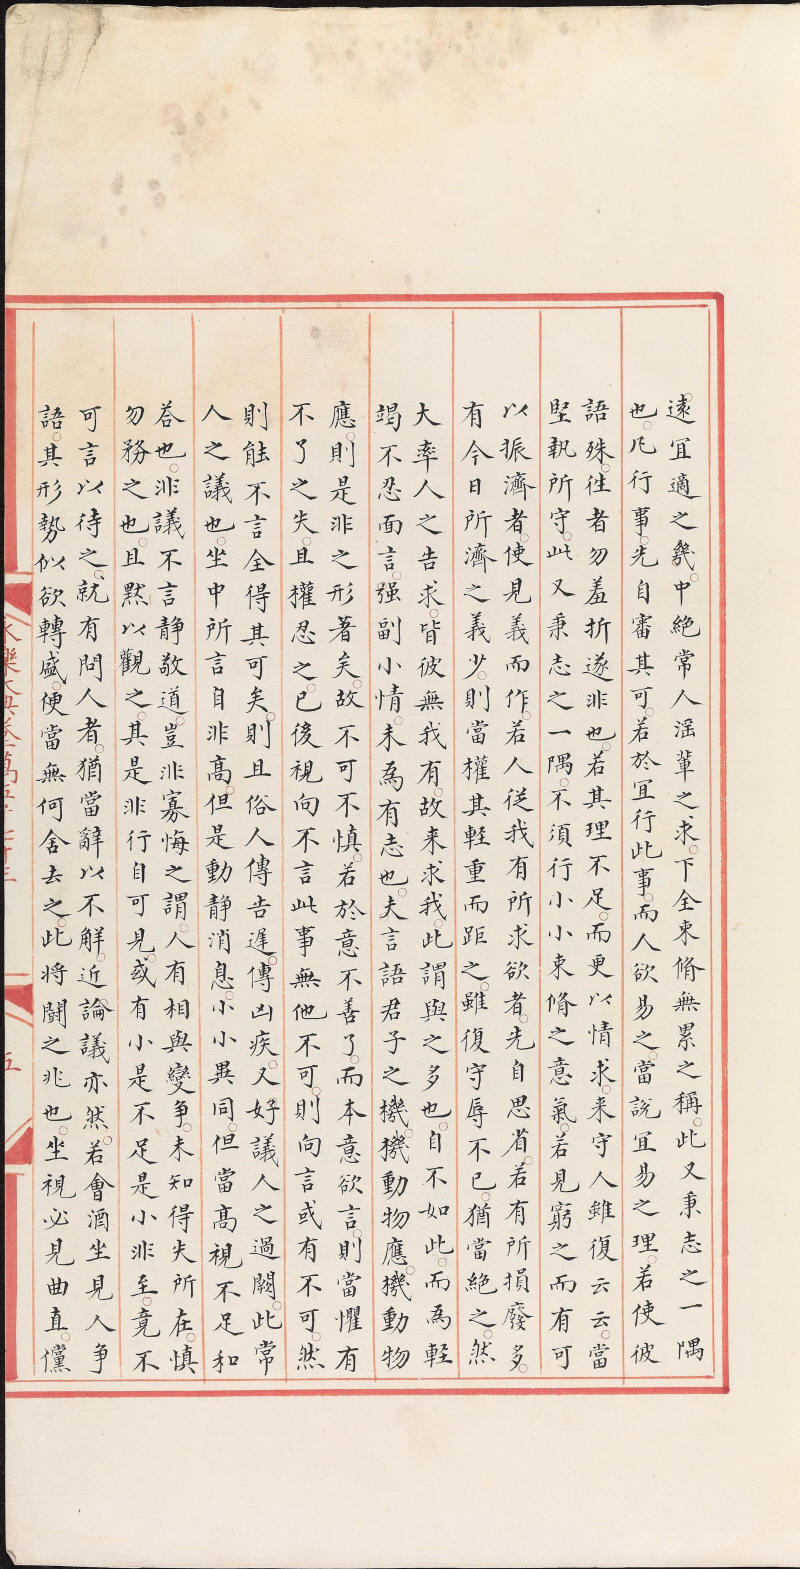 遠宜適之幾中絶常人淫輩之求下全束脩無累之稱此又秉志之一隅
也凡行事先自審其可若於宜行此事而人欲易之當說宜易之理若使彼
語殊徃者勿羞折遂非也若其理不足而更以情求来守人雖復云云當
堅執所守此又秉志之一隅不須行小小束脩之意氣若見窮之而有可
以振濟者使見義而作若人從我有所求欲者先自思省若有所損廢多
有今日所濟之義少則當權其輕重而距之雖復守辱不已猶當絶之然
大率人之告求皆彼無我有故来求我此謂與之多也自不如此而為輕
竭不忍面言强副小情未為有志也夫言語君子之機機動物應機動物
應則是非之形著矣故不可不慎若於意不善了而本意欲言則當懼有
不了之失且權忍之已後視向不言此事無他不可則向言或有不可然
則能不言全得其可矣則且俗人傳告遲傳凶疾又好議人之過闕此常
人之議也坐中所言自非高但是動静消息小小異同但當高視不足和
荅也非議不言静敬道豈非寡悔之謂人有相與變爭未知得失所在慎
勿務之也且黙以觀之其是非行自可見或有小是不足是小非至竟不
可言以待之就有問人者猶當辭以不解近論議亦然若會酒坐見人争
語其形勢似欲轉盛便當無何舍去之此將鬭之兆也坐視必見曲直儻
五